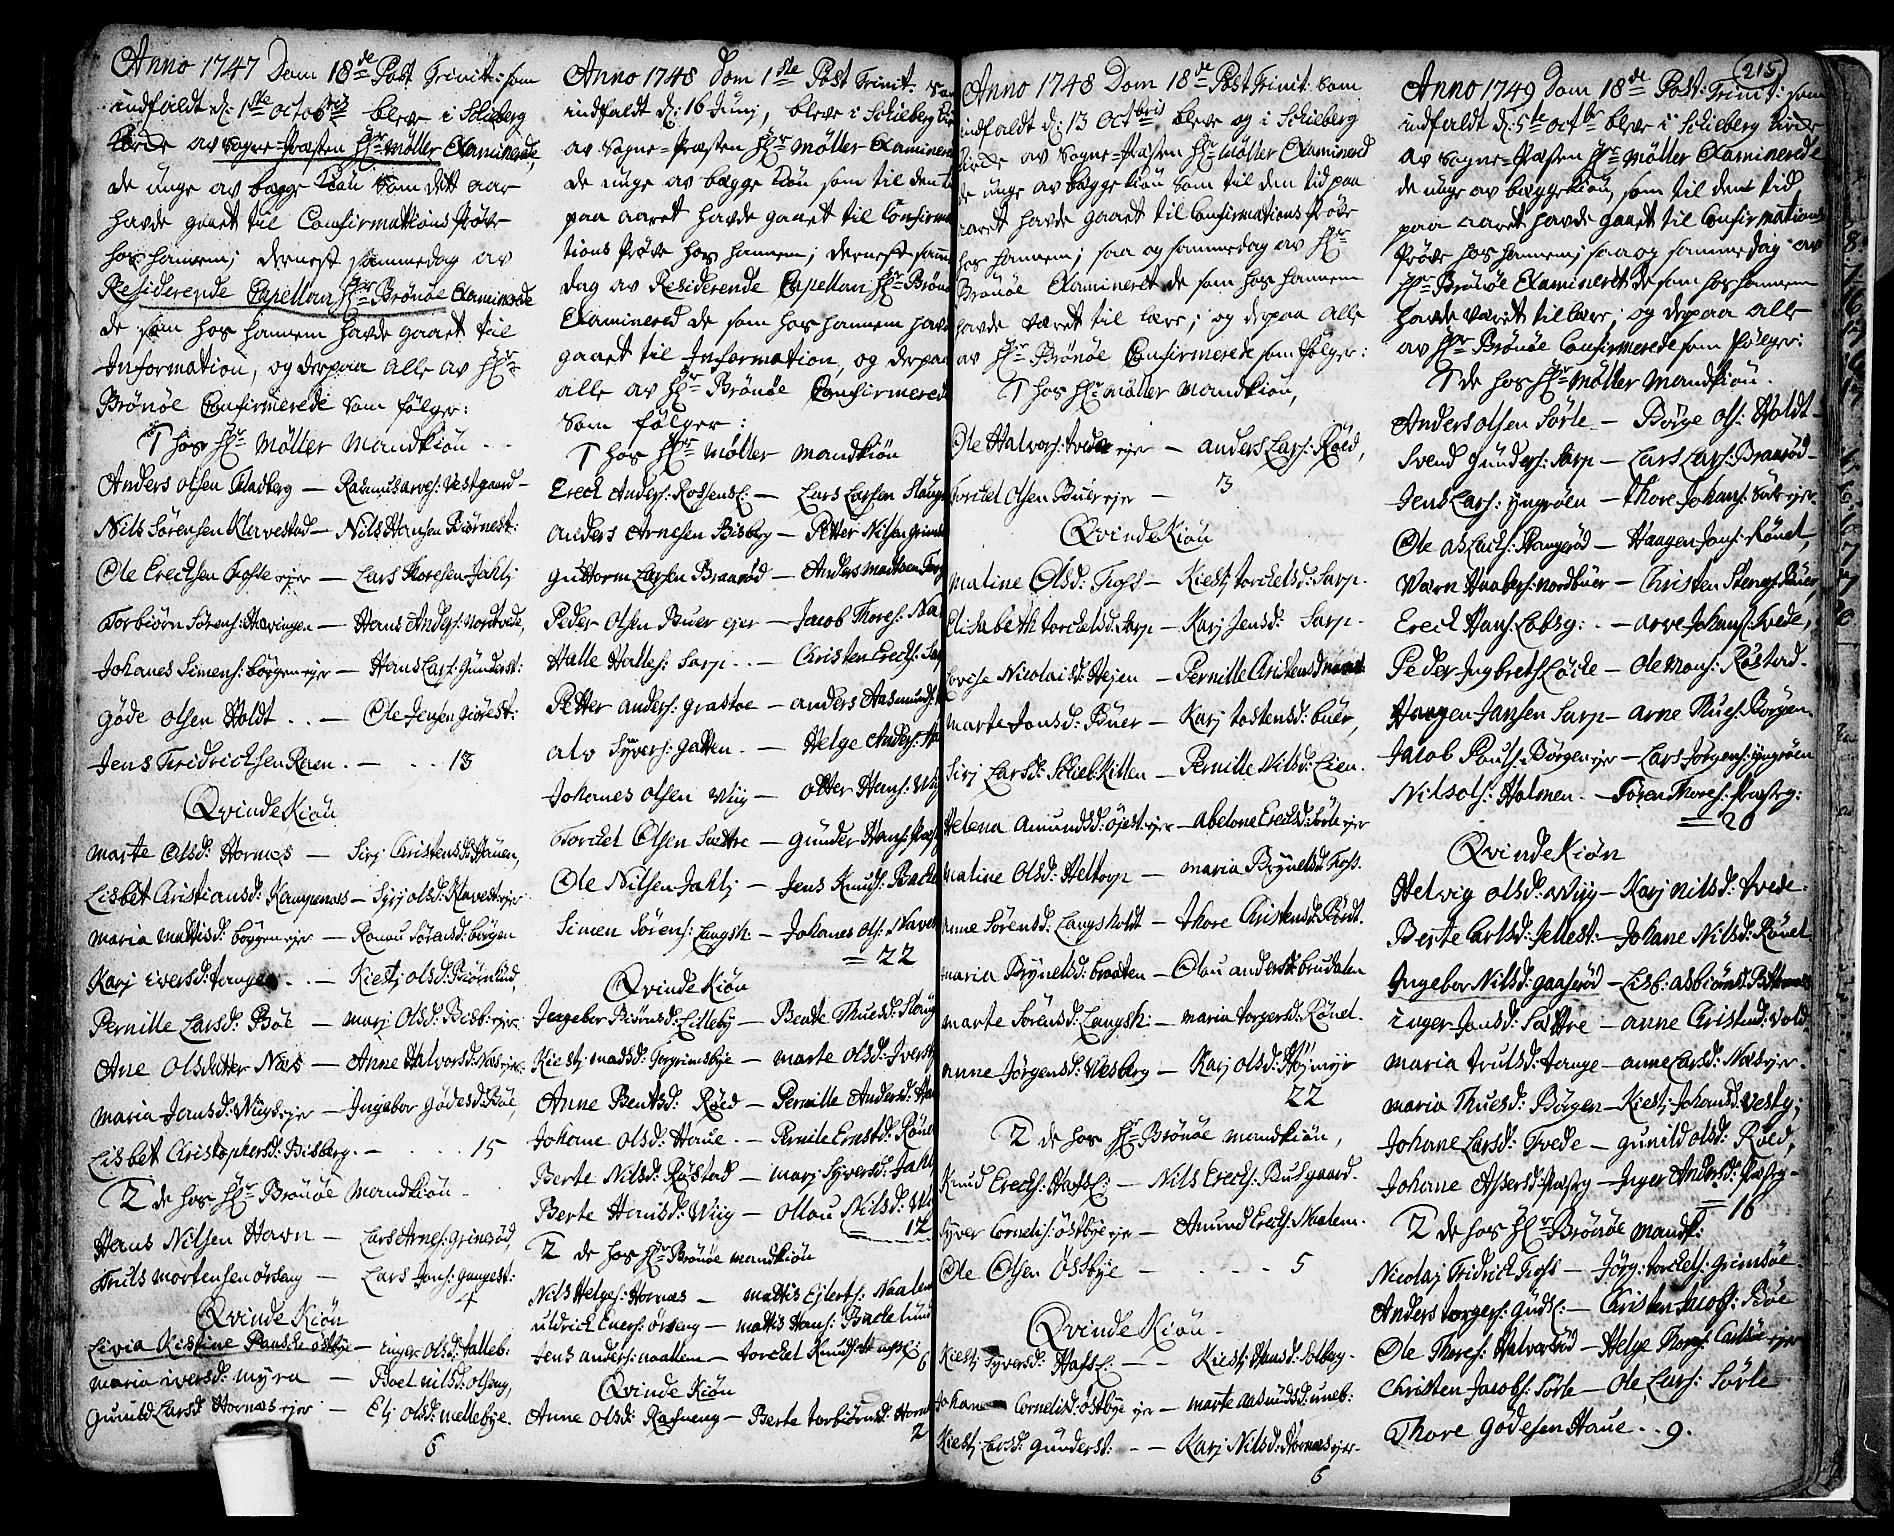 Anno 1747 Dom 18de Post Trinit: som
indfaldt d: 1ste Octobris blev i Schieberg
Kirke av Sogne-Præsten Hr Möller Examinerede,
de unge av begge Kiön som dett aar
havde gaaet til Confirmations Pröve
hos hannem; dernest sammedag av
Residerende Capellan Hr Brönöe Examinerede
de som hos hannem havde gaaet til
Information, og derpaa alle av Hr
Brönöe Confirmerede som fölger:
1 hos Hr Möller Mandkiön
Anders Olsen Fladberg — Rasmus arves: Vestgaard
Nils Sörensen Klavestad — Nils Hansen Biörnest:
Ole Erechsen Tofte ejer — Lars Thoresen Jahlj
Torbiörn Sörens: Havingen — Hans Anders: Nordtvede,
Johanes Simens: börgen ejer — Hans Lars: Gunderst:
Göde Olsen Holdt . . — Ole Jensen Giörest:
Jens Fridrichsen Reen . — . . 13
QvindeKiön
Marte Olsd: Hornes — Sirj Christensd: Hauen,
Lisbet Christiansd: Kampenæs — Syrj olsd: Klavest ejer
Maria Mattisd: börgen ejer — Ronau Sörensd: börgen
Karj Iversd: tangen . . — Kiestj olsd: Biörnlund,
Pernille Larsd: Böe — Marj Olsd: Bisb: ejer
Ane Olsdatter Næs — Anne Halvorsd: Næs ejer
Maria Jansd: Wiigs ejer — Ingebor Gödesd: Böe,
Lisbet Christophersd: Bisberg . — . . . 15
2 de hos Hr Brönöe Mandkiön
Hans Nilsen Havn — Lars Arnes: Grimsöd,
Truls Mortensen örseng — Lars Jons: gangest:
4
Qvinde Kiön
Livia Kistine Pauske östbye — inger olsd: Jalleb:
Maria Iversd: Myra — Boel nilsd: olseng,
Gunild Larsd Hornæs ejer — Elj olsd: Mellebye.
6
Anno 1748 Dom 1ste Post Trinit. som
indfaldt d: 16 Junij, blev i Schieberg
av Sogne-Præsten Hr Möller Examinere
de unge av begge Kiön som til den
paa aaret havde gaaet til Confirma
tions Pröve hos hannem; dernest samme
dag av Residerende Capellan Hr Brönöe
Examinered de som hos hannem havde
gaaet til Information, og derpaa
alle av Hr Brönöe Confirmerede
som fölger:
1 hos Hr Möller Mandkiön
Erech Anders: — Lars Larsen Haug
Anders Arnesen Bisberg — Petter Nilsen
Guttorm Larsen Braaröd — Anders Madtsen
Peder Olsen Buer ejer — Jacob Thores:
Halle Halles: Sarp . . — Christen Erechs:
Petter Anders: grastoe — Anders Aasmunds:
alv Syvers: gatten . — Helge Anders:
Johanes Olsen Wiig — Otter Hans: Wiig
Torckel Olsen Sættre — Gunder Hans:
Ole Nilsen Jahlj — Jens Knuds: Backe
Simen Sörens: Langsh — Johanes Ols:
= 22
Qvinde Kiön
Ingebor Biörnsd: Lilleby — Beate Thuesd: Haug
Kiestj Madsd: Torgrimsbye — Marte Olsd:
Anne Bentsd: Röed — Pernille Andersd:
Johane Olsd: Haue . — Pernile Ernstd: Röne
Berte Nilsd: Röstad — Marj Syversd: Jahl
Berte Hansd: Wiig — Ollou Nilsd:
12
2 de hos Hr Brönöe Mandkiön
Nils Helges: Hornæs — Mattis Ejlerts: Naalem
uldrich Evers: örseng — Mattis Hans: Backelund
Jens Anders: naallem — torckel Knuds: 6
Qvinde Kiön
Anne Olsd: Rafneng — Berte torbiörnsd: Horn
2
Anno 1748 Dom 18de Post Trinit: som
indfaldt d: 13 Octbris blev og i Schieberg
Kirke av Sogne-Præsten Hr Möller Examinered
de unge av begge Kiön som til den tid paa
aaret havde gaaet til Confirmations Pröve
hos hannem; saa og sammedag av Hr
Brönöe Examineret de som hos hannem
havde været til lære; og derpaa alle
av Hr Brönöe Confirmerede som fölger:
1 hos Hr Möller Mandkiön,
Ole Halvors: tvede ejer — Anders Lars: Röed,
Torckel Olsen Buer ejer — 3
QvindeKiön
Maline Olsd: Foss — Kiestj torckelsd: Sarp.
Elisabeth torckelsd: Sarp — Karj Jensd: Sarp.
Lovise Nicolaisd: Hejen — Pernille Christensd
Marte Jonsd: Buer — Karj tostensd: buer,
Sirj Larsd: Schieb: Killen — Pernille Nilsd: Lien.
Helena Amundsd: öjest: ejer — Abelone Erechsd: börte ejer
Maline Olsd: Heltorp — Maria Brynelsd: Foss.
Anne Sörensd: Langsholdt — Thore Christensd: Röndt.
Maria Brynelsd: braaten — Olau andersd: brudalen
Marte Sörensd: Langsh: — Maria torgersd: Rönel.
Anne Jörgensd: Wesberg — Karj Olsd: Höj: myr
22
2 de hos Hr Brönöe Mandkiön,
Knud Erechs: Hafsl: — Nils Erechs: Busgaard.
Syver Cornelis: östbye ejer — Amund Erechs: Naalem.
Ole Olsen Östbye — . . . . 5
Qvinde Kiön
Kiestj Syversd: Hafsl: — Kiestj Hansd: Solberg.
Johane Cornelisd: östbye ejer — Marte aasmundsd: uneb:
Kiestj Larsd: Gunderst: . . — Karj Nilsd: Hornæs ejer.
6
215
Anno 1749 Dom 18de Post: Trinit: som
indfaldt d: 5te Octbr blev i Schieberg Kirke
av Sogne-Præsten Hr Möller Examinerede
de unge av begge kiön, som til den tid
paa aaret havde gaaet til Confirmations
Pröve hos hannem; saa og sammedag av
Hr Brönöe Examineret de som hos hannem
havde været til lære; og derpaa alle
av Hr Brönöe Confirmerede som fölger:
1 de hos Hr Möller Mandkiön.
Anders Olsen Sörle — Börge Ols: Holdt
Svend Gunders: Sarp — Lars Lars: Braaröd
Jens Lars: Yngröen — Thore Johans: Sæt ejer
Ole Aslachs: Stangeröd — Haagen Jons: Rönel,
Værn Haabers: nordbuer — Christen Stengs: Buer,
Erech Hans: Lobsg: . — Arve Johans: Tvede,
Peder Ingbrets: Löcke — Ole Mons: Röstad.
Haagen Jansen Sarp — Arne Thues: Börgen.
Jacob Pouls: Börgen ejer — Lars Jörgens: yngröen
Nils Ols: Holmen . — Sören Thores: Præstg:
= 20
QvindeKiön
Helvig Olsd: Wiig — Karj Nilsd: Tvede.
Berte Carlsd: Jellest: — Johane Nilsd: Rönel
Ingebor Nilsd: gaaseröd — Lisb: Asbiörnsd:
Inger Jonsd: Sættre — Anne Christensd: Vold.
Maria Trulsd: Tange — Anne Larsd: Næs ejer.
Maria Thuesd: Börgen — Kiestj Johansd: Vestg;
Johane Larsd: Tvede — Gunild olsd: Röed,
Johane Assersd: Præstg — Inger Andersd: Præstg
= 16
2 de hos Hr Brönöe Mandk:
Nicolaj Fridrich Foss — Jörg: torckels: Grimsöe.
Anders torgers: Gudsl: — Christen Jacobs: Böe
Ole Thores: Halvorsröd — Helge Thorg:
Christen Jacobs: Sörle — Ole Lars: Sörle
Thore Gödesen Haue . . 9.